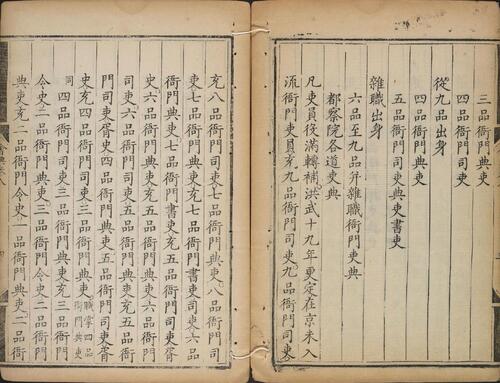 三品衙門典吏
四品衙門司吏
四品衙門典吏
從九品出身
五品衙門司吏典吏書吏
雜職出身
六品至九品并雜職衙門吏典
都察院各道吏典
凡吏員役滿轉補洪武十九年更定在京未入
流衙門吏員充九品衙門司吏九品衙門司吏
充八品衙門司吏七品衙門典吏八品衙門司
吏七品衙門典吏充七品衙門書吏司吏六品
衙門典吏七品衙門書吏充五品衙門司吏胥
史六品衙門典吏充五品衙門典吏六品衙門
司吏六品衙門典吏五品衙門典吏充五品衙
門司吏胥史四品衙門典吏五品衙門司吏胥
史充四品衙門司吏三品衙門典吏職掌四品衙門典吏
同四品衙門司吏三品衙門典吏充三品衙門
令史二品衙門典吏三品衙門令史二品衙門
典吏充二品衙門令史一品衙門典吏二品衙